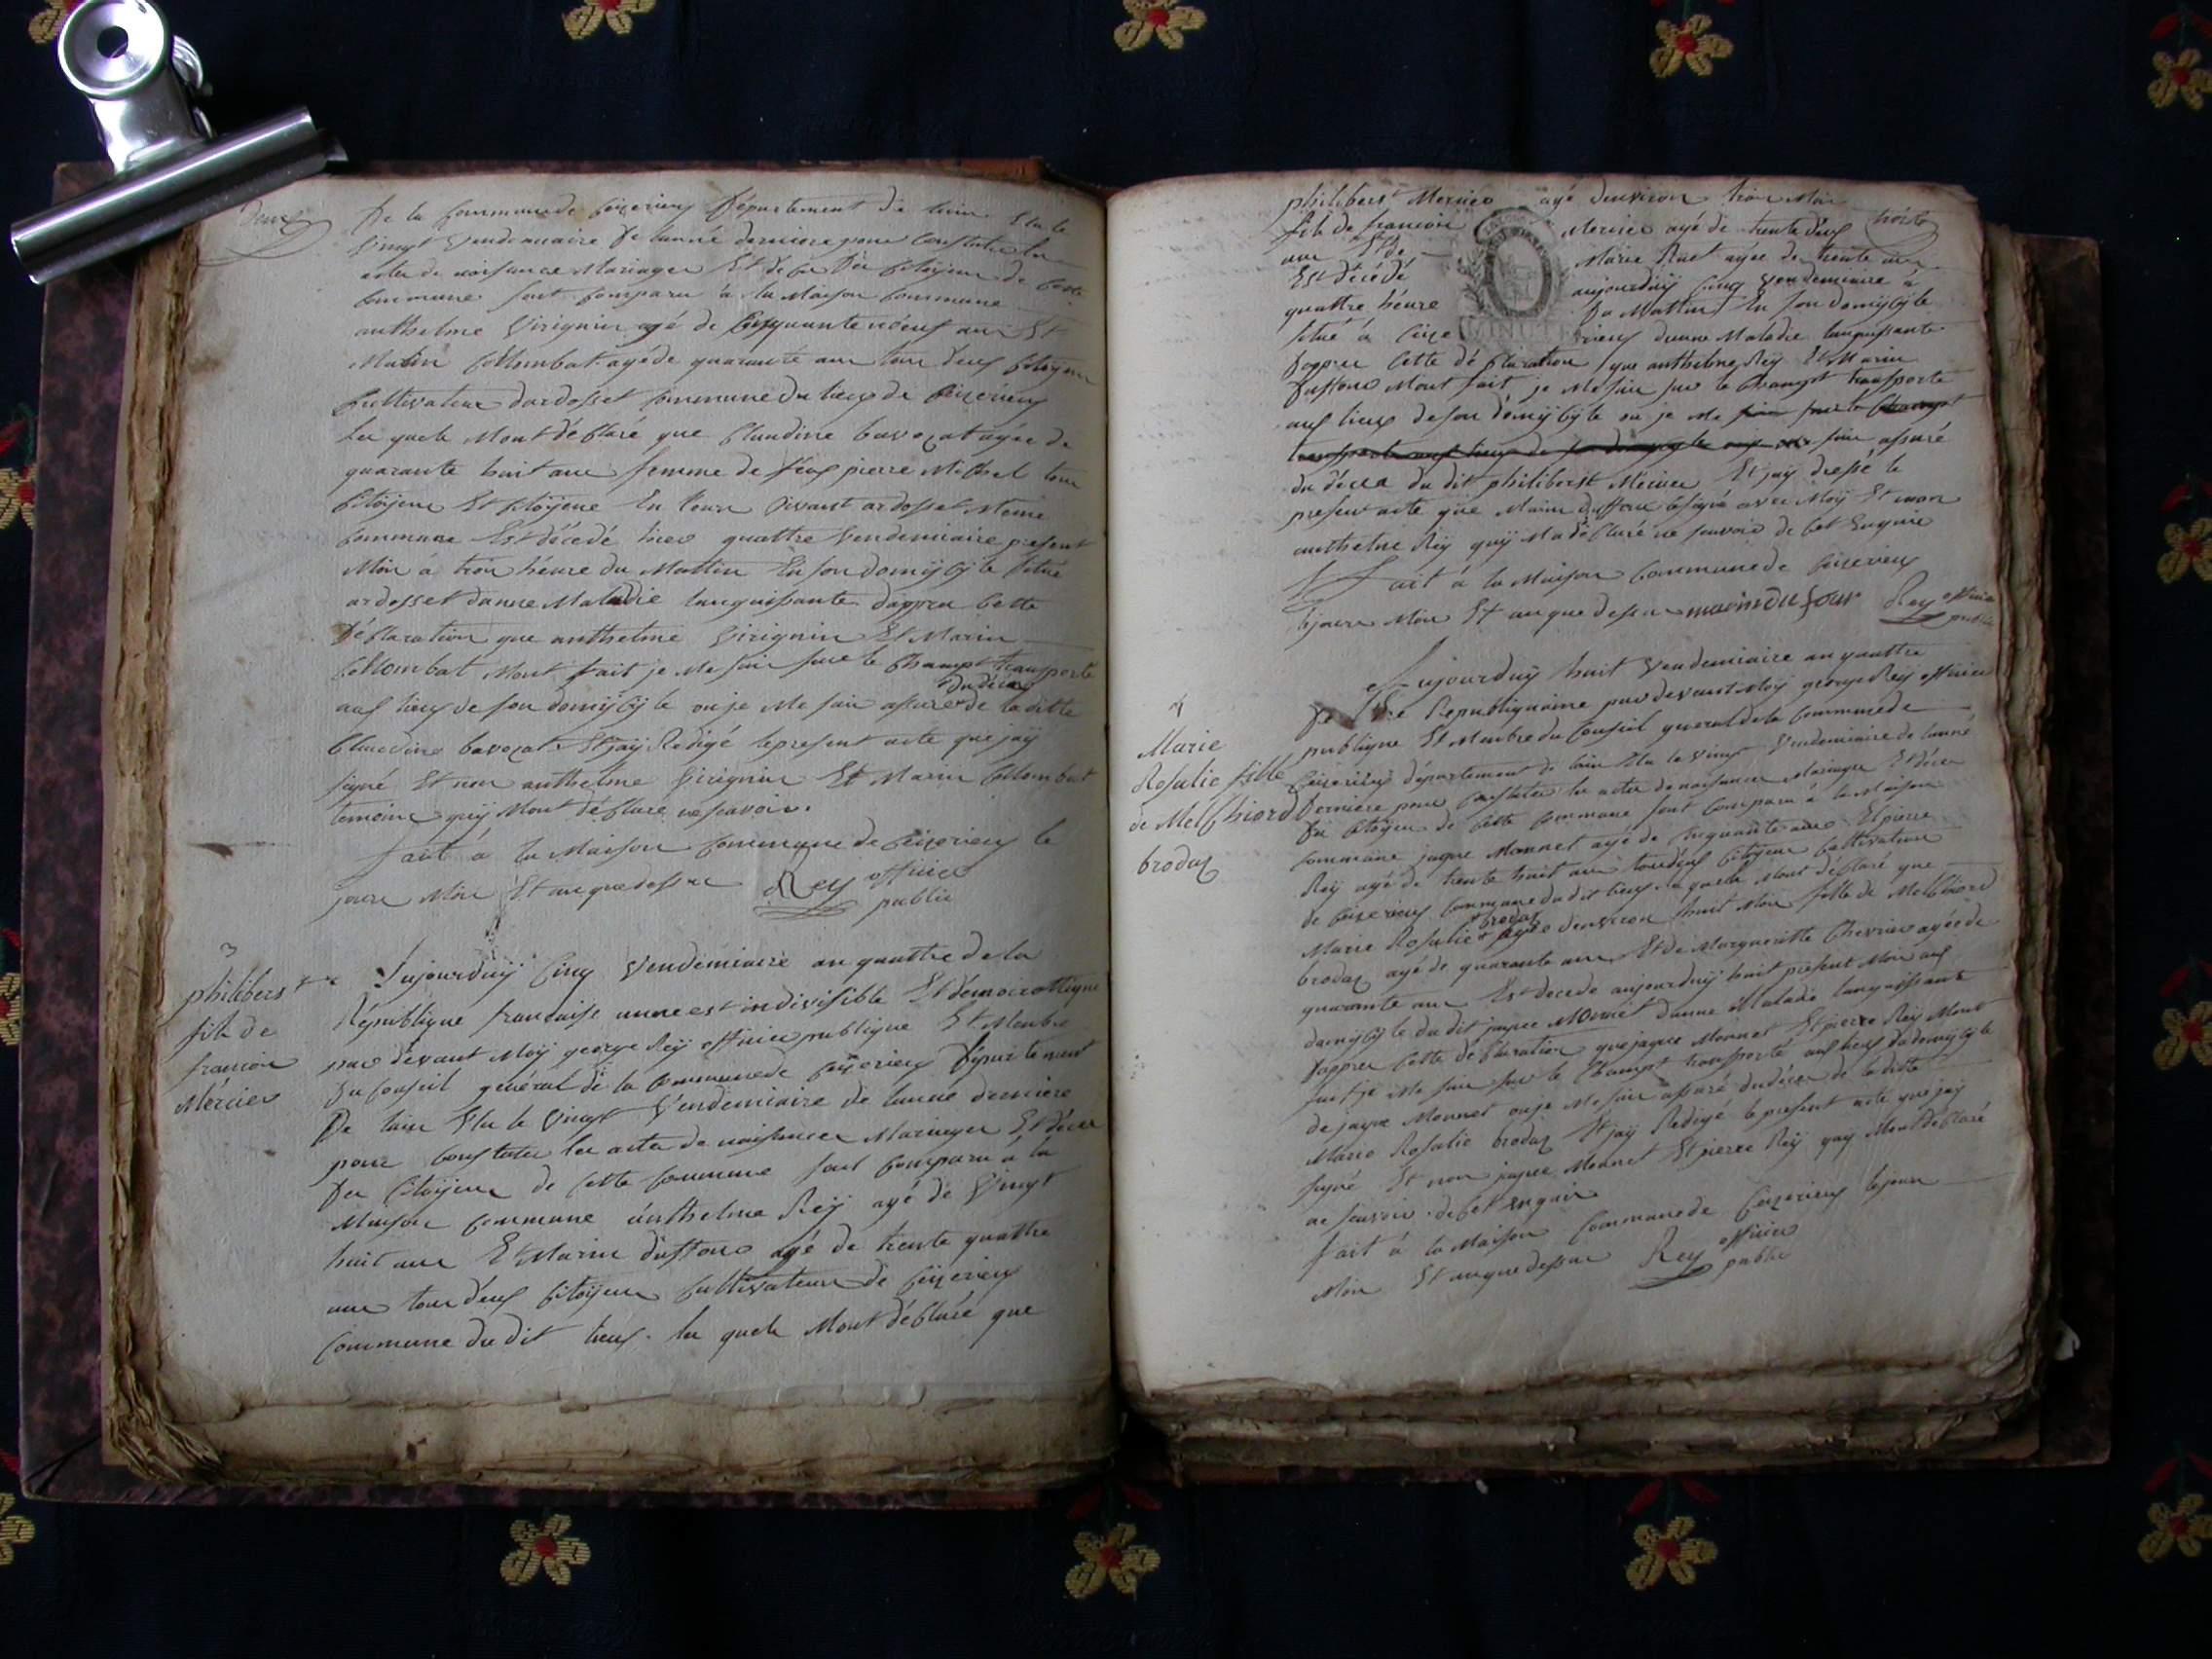 Deux
De la Commune de Ceizerieux département de lain Elu le
vingt vendemiaire de lanné derniere pour Constater les
actes de naissance Mariages Et deces Des Citoÿens de Cette
Commune sont Comparu a la Maison Commune
anthelme Virignin agé de Cinquante nóeuf ans Et
Marin Collombat agé de quarante ans tous deux Citoÿens
Cultivateurs dardosset Commune du lieux de Ceizerieux
les quels Mont déClaré que Claudine bavozat agée de
quarante huit ans femme de féus pierre Michel tous
Citoÿens Et Citoÿene En leurs vivant ardosset Meme
Commune Est décedé hier quattre vendemiaire present
Mois á trois héure du Mattin En son domiÿCÿle situé
ardosset dunne Maladie languissante dappres Cette
déClaration que anthelme Virignin Et Marin
Collombat Mont fait je Me suis sure le Champt transporté
aux lieux de son domiÿCÿle ou je Me suis assuré du déces de la ditte
Claudine bavozat Et jaÿ Redigé le present acte que jaÿ
signé Et non anthelme Virignin Et Marin Collombat
temoins quÿ Mont déClare ne savoir.
fait á la Maison Commune de Ceizerieux le
jour Mois Et an que dessus Rey officier
public
3
philiberst
fils de
francois
Mércier
Aujourduÿ Cinq vendemiaire an quattre de la
République francaise unne est indivisible Et démocrattique
par dévant Moÿ george Reÿ officier publique Et Menbre
du Conseil genéral de la Commune de Ceizerieux département
De lain Elu le vingt vendemiaire de lanné derniere
pour Constater les actes de naissances Mariages Et déces
des Citoÿens de Cette Commune sont Comparu a la
Maison Commune ánthelme Reÿ agé de vingt
huit ans Et Marin duffour agé de trente quattre
ans tous déux Citoÿens Cultivateurs de Ceizerieux
Commune du dit lieux. les quels Mont déClaré que
philiberst Mercier agé denviron trois Mois
troiste
fils de francois Mercier agé de trente déux
ans Et de Marie Ruet agée de trente ans
Est décédé aujourduÿ Cinq vendemiaire á
quattre héure du Mattin En son domiÿCÿle
situé á Ceizerieux dunne Maladie languissante
dappres Cette déClaration que anthelme Reÿ Et Marin
duffour Mont fait je Me suis sur le Champt transporté
aux lieux de son domiÿCÿle ou je Me suis sur le Champt
transporte aux lieux de son domiyCyle suis assuré
du déces du dit philiberst Mercier Et jaÿ dressé le
present acte que Marin duffour á signé avec Moÿ Et non
anthelme Reÿ quÿ Ma déClaré ne savoir de Cet Enquire
Fait á la Maison Commune de Ceizerieux
le jour Mois Et an que dessus marin dufour Rey officier
public
4
Marie
Rosalie fille
de MelChiord
brodaz
Aujourduÿ huit vendemiaire an quattre
de lEre Republiquaine par devant Moÿ george Reÿ officier
publique Et Menbre du Conseil general de la Commune de
Ceizerieux département de lain Elu le vingt vendemiaire de lanné
derniere pour Constater les actes de naissances Mariages Et déces
des Citoÿens de Cette Commune sont Comparu á la Maison
Commune jaque Monnet agé de Cinquante ans Et pierre
Reÿ agé de trente huit ans tous déux Citoÿens Cultivateurs
de Ceizerieux Commune du dit lieux les quels Mont déClaré que
Marie Rosalie brodaz agée denviron huit Mois fille de MelChiord
brodaz agé de quarante ans Et de Margueritte Chevrier agée de
quarante ans Est decedé aujourduÿ huit present Mois aux
domiÿCÿle du dit jaque Monnet dunne Maladie languissante
dappres Cette déClaration que jaque Monnet Et pierre Reÿ Mont
fait je Me suis sur le Champt transporté aux lieux du domiÿCÿle
de jaque Monnet ou je Me suis assuré du déces de la ditte
Marie Rosalie brodaz Et jaÿ Redigé le present acte que jaÿ
signé Et non jaque Monnet Et pierre Reÿ quÿ Mont déClaré
ne scavoir de Cet Enquire
fait á la Maison Commune de Ceizerieux le jour
Mois Et an que dessus Rey officier
public